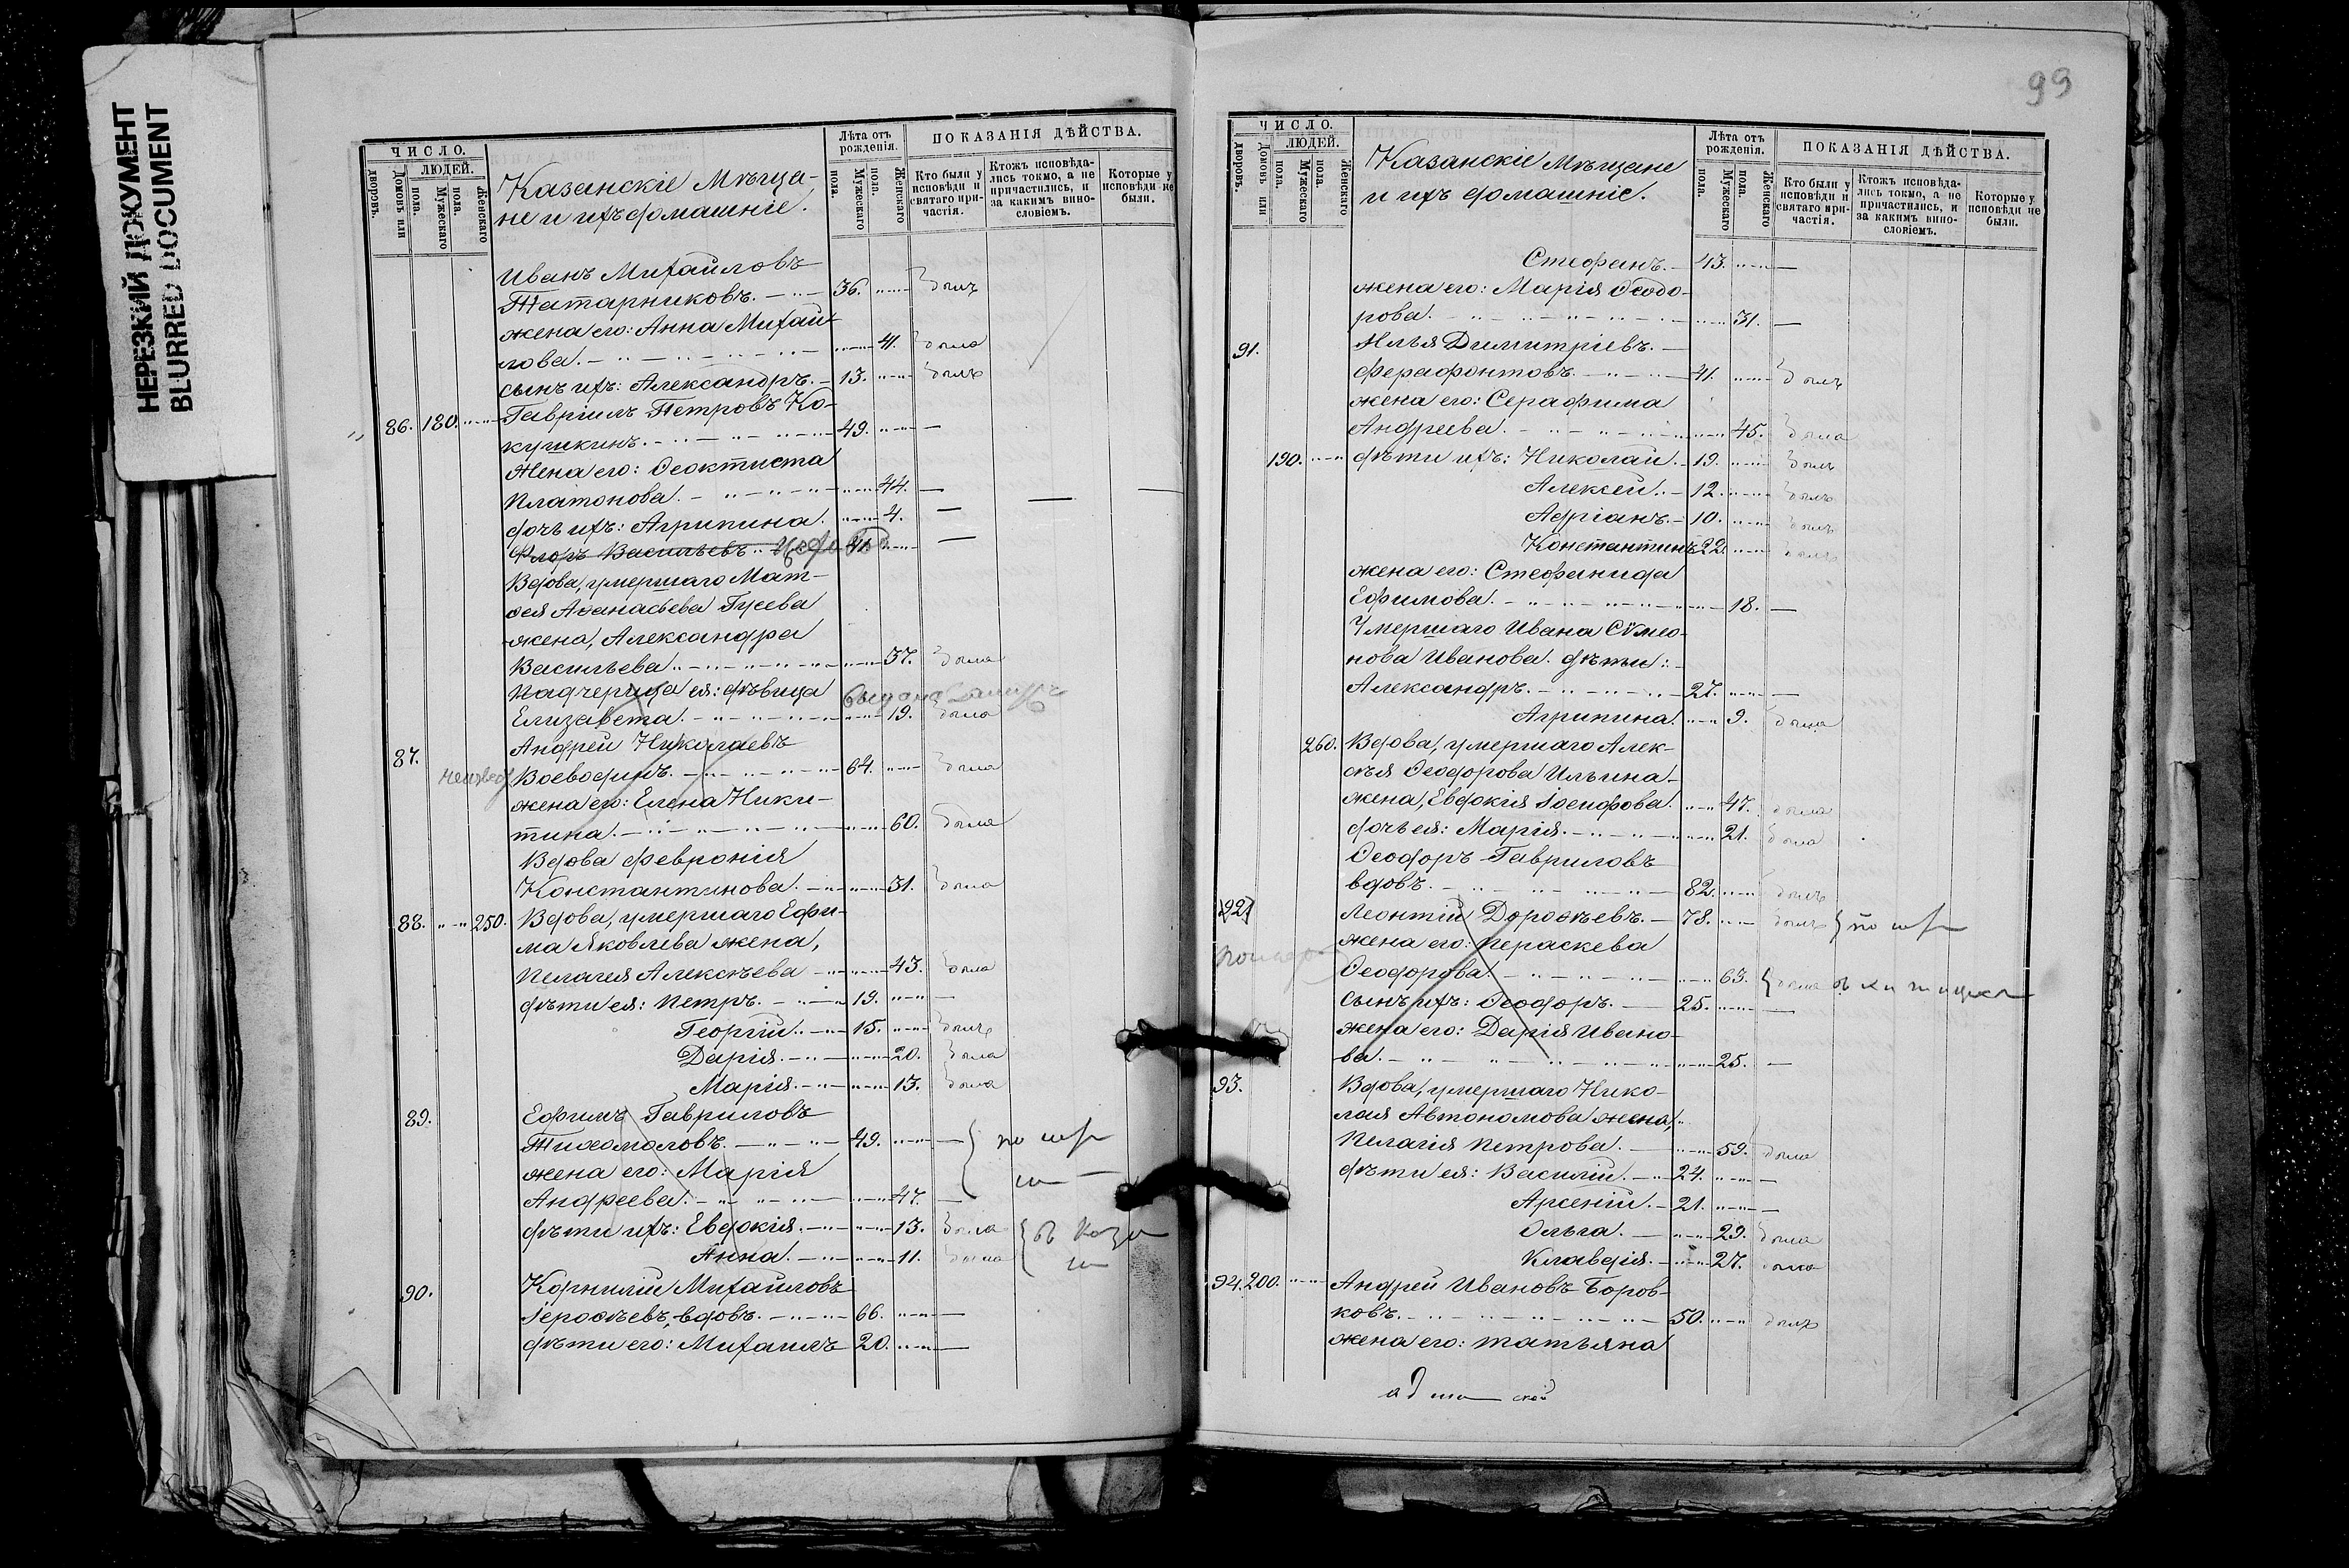 НЕРЕЗКИЙ ДОКУМЕНТ
BLURRED DOCUMENT
ЧИСЛО.
ЛЮДЕЙ.
Домовъ или дворовъ.
Мужескаго пола.
Женскаго пола.
Казанскіе Мѣща-
не и ихъ домашніе.
Лѣта отъ рожденія.
Мужескаго пола.
Женскаго пола.
ПОКАЗАНІЯ ДѢЙСТВА.
Кто были у исповѣди и святаго при-частія.
Ктожъ исповѣда-лись токмо, а не причастились, и за какимъ вино-словіемъ.
Которые у исповѣди не были.
Иванъ Михайловъ
Татарниковъ. 36. былъ
жена его: Анна Михай-
лова. 41. была
сынъ ихъ: Александръ. 13. былъ
86. 180. Гавріилъ Петровъ Ко-
кушкинъ. 49. —
Жена его: Ѳеоктиста
Платонова. 44. —
дочь ихъ: Агрипина. 4. —
Флоръ Васильевъ —
Вдова, умершаго Мат-
ѳея Аѳанасьева Гусева
жена, Александра
Васильева 37. была
Падчерица ея: дѣвица
Елизавета. 19. была
87. Андрей Николаевъ
Воеводинъ. 64. была
жена его: Елена Ники-
тина. 60. была
Вдова Февронія
Константинова. 31. была
88. 250. Вдова, умершаго Ефи-
ма Яковлева жена,
Пелагея Алексѣева 43. была
дѣти ея: Петръ. 19. —
Георгій. 15. былъ
Дарія. 20. была
Марія. 13. была
89. Ефимъ Гавриловъ
Тихомоловъ. 49. —
жена его: Марія
Андреева. 47. —
дѣти ихъ: Евдокія. 13. была
Анна. 11. была
90. Корнилій Михайловъ
Іероѳеевъ, вдовъ. 66. —
дѣти его: Михаилъ 20. —
99
ЧИСЛО.
ЛЮДЕЙ.
Домовъ или дворовъ.
Мужескаго пола.
Женскаго пола.
Казанскіе Мѣщане
и ихъ домашніе.
Лѣта отъ рожденія.
Мужескаго пола.
Женскаго пола.
ПОКАЗАНІЯ ДѢЙСТВА.
Кто были у исповѣди и святаго при-частія.
Ктожъ исповѣда-лись токмо, а не причастились, и за какимъ вино-словіемъ.
Которые у исповѣди не были.
Стефанъ. 43. —
жена его: Марія Ѳеодо-
рова. 31. —
91. Илья Димитріевъ
Ферафонтовъ. 41. былъ
жена его: Серафима
Андреева. 45. была
190. дѣти ихъ: Николай. 19. былъ
Алексей. 12. былъ
Адріанъ. 10. былъ
Константинъ 22. былъ
жена его: Стефанида
Ефимова. 18. —
Умершаго Ивана Сѵмео-
нова Иванова дѣти:
Александръ. 27. —
Агрипина. 9. была
260. Вдова, умершаго Алек-
сѣя Ѳеодорова Ильина
жена, Евдокія Іосифова. 47. была
дочь ея: Марія. 21. была
Ѳеодоръ Гавриловъ
вдовъ. 82. былъ
92. Леонтій Дороѳѣевъ. 78. былъ
жена его: Пераскева
Ѳеодорова. 63. была
сынъ ихъ: Ѳеодоръ. 25. —
жена его: Дарія Ивано-
ва. 25. —
93. Вдова, умершаго Нико-
лая Автономова жена,
Пелагія Петрова. 59. была
дѣти ея: Василій. 24. —
Арсеній. 21. —
Ольга. 29. была
Клавдія. 27. была
94. 200. Андрей Ивановъ Боров-
ковъ. 50. былъ
жена его: Татьяна